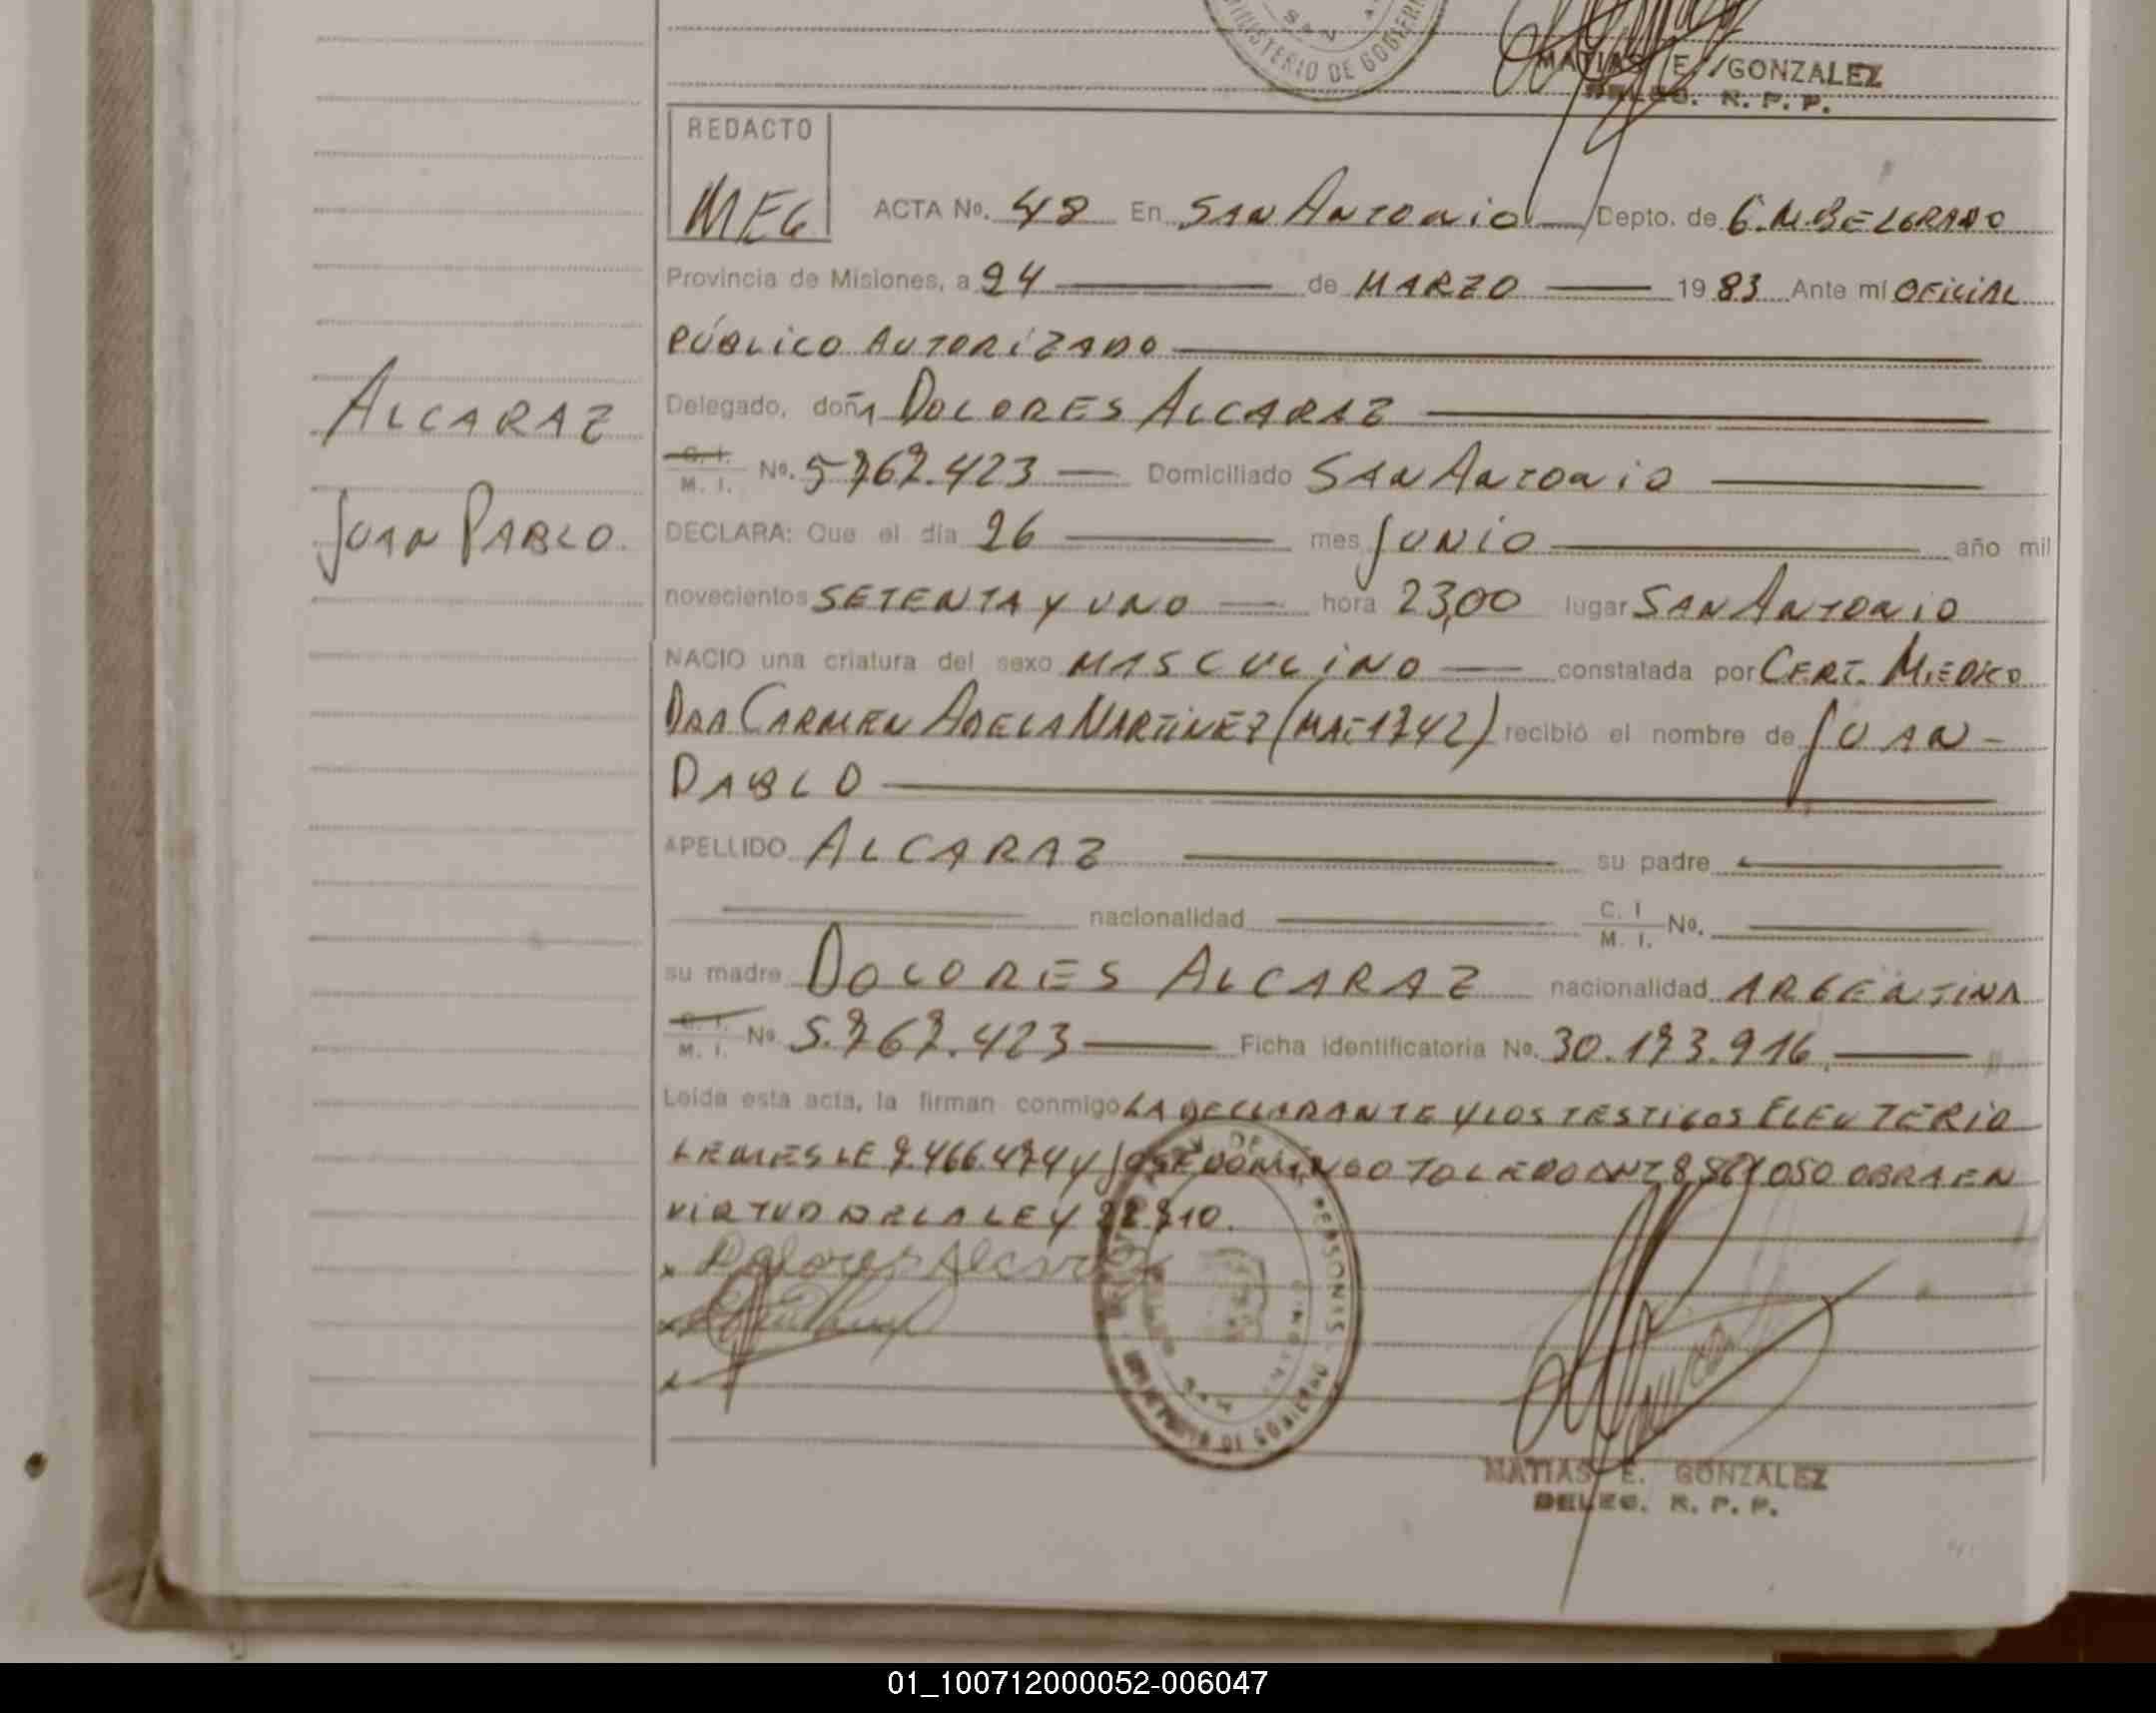 MINISTERIO DE GOBIERN
SAN A
MATIAS E. GONZALEZ
DELEG. R. P. P.
REDACTO
MEG
ACTA No. 48 En SAN ANTONIO Depto. de G.M.BELGRADO
Provincia de Misiones, a 24 de MARZO 1983 Ante mí OFICIAL
PÚBLICO AUTORIZADO
Delegado, doña DOLORES ALCARAZ
C. I.
M. I. No. 5.767.423 Domiciliado SAN ANTONIO
DECLARA: Que el día 26 mes JUNIO año mil
novecientos SETENTA Y UNO hora 23,00 lugar SAN ANTONIO
NACIO una criatura del sexo MASCULINO constatada por CERT. MEDICO
DRA CARMEN ADELA MARTINEZ (MAT 1742) recibió el nombre de JUAN-
PABLO
APELLIDO ALCARAZ su padre
nacionalidad C. I
M. I. No.
su madre DOLORES ALCARAZ nacionalidad ARGENTINA
C. I.
M. I. No 5.767.423 Ficha identificatoria No. 30.173.916
Leída esta acta, la firman conmigo LA DECLARANTE Y LOS TESTIGOS ELEUTERIO
LE 7.466.474 Y JOSE DOMINGO TOLEDO DNI 8.5 050 OBRA EN
VIRTUD DE LA LEY 22.710.
x Dolores Alcaraz
x
x
ALCARAZ
JUAN PABLO.
DE PERSONAS
SAN ANTONIO
MINISTERIO DE GOBIERNO
MATIAS E. GONZALEZ
DELEG. R. P. P.
01_100712000052-006047